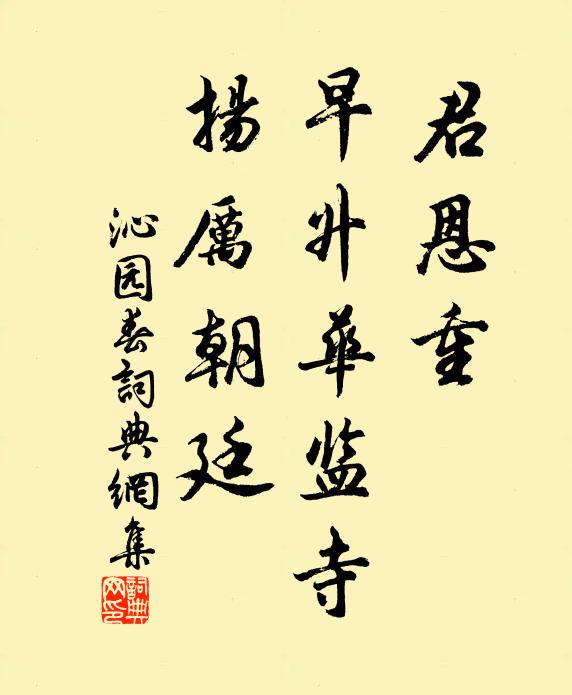 君恩重
早升華监寺
揚厲朝廷
沁园春詞典網集
詞典網印